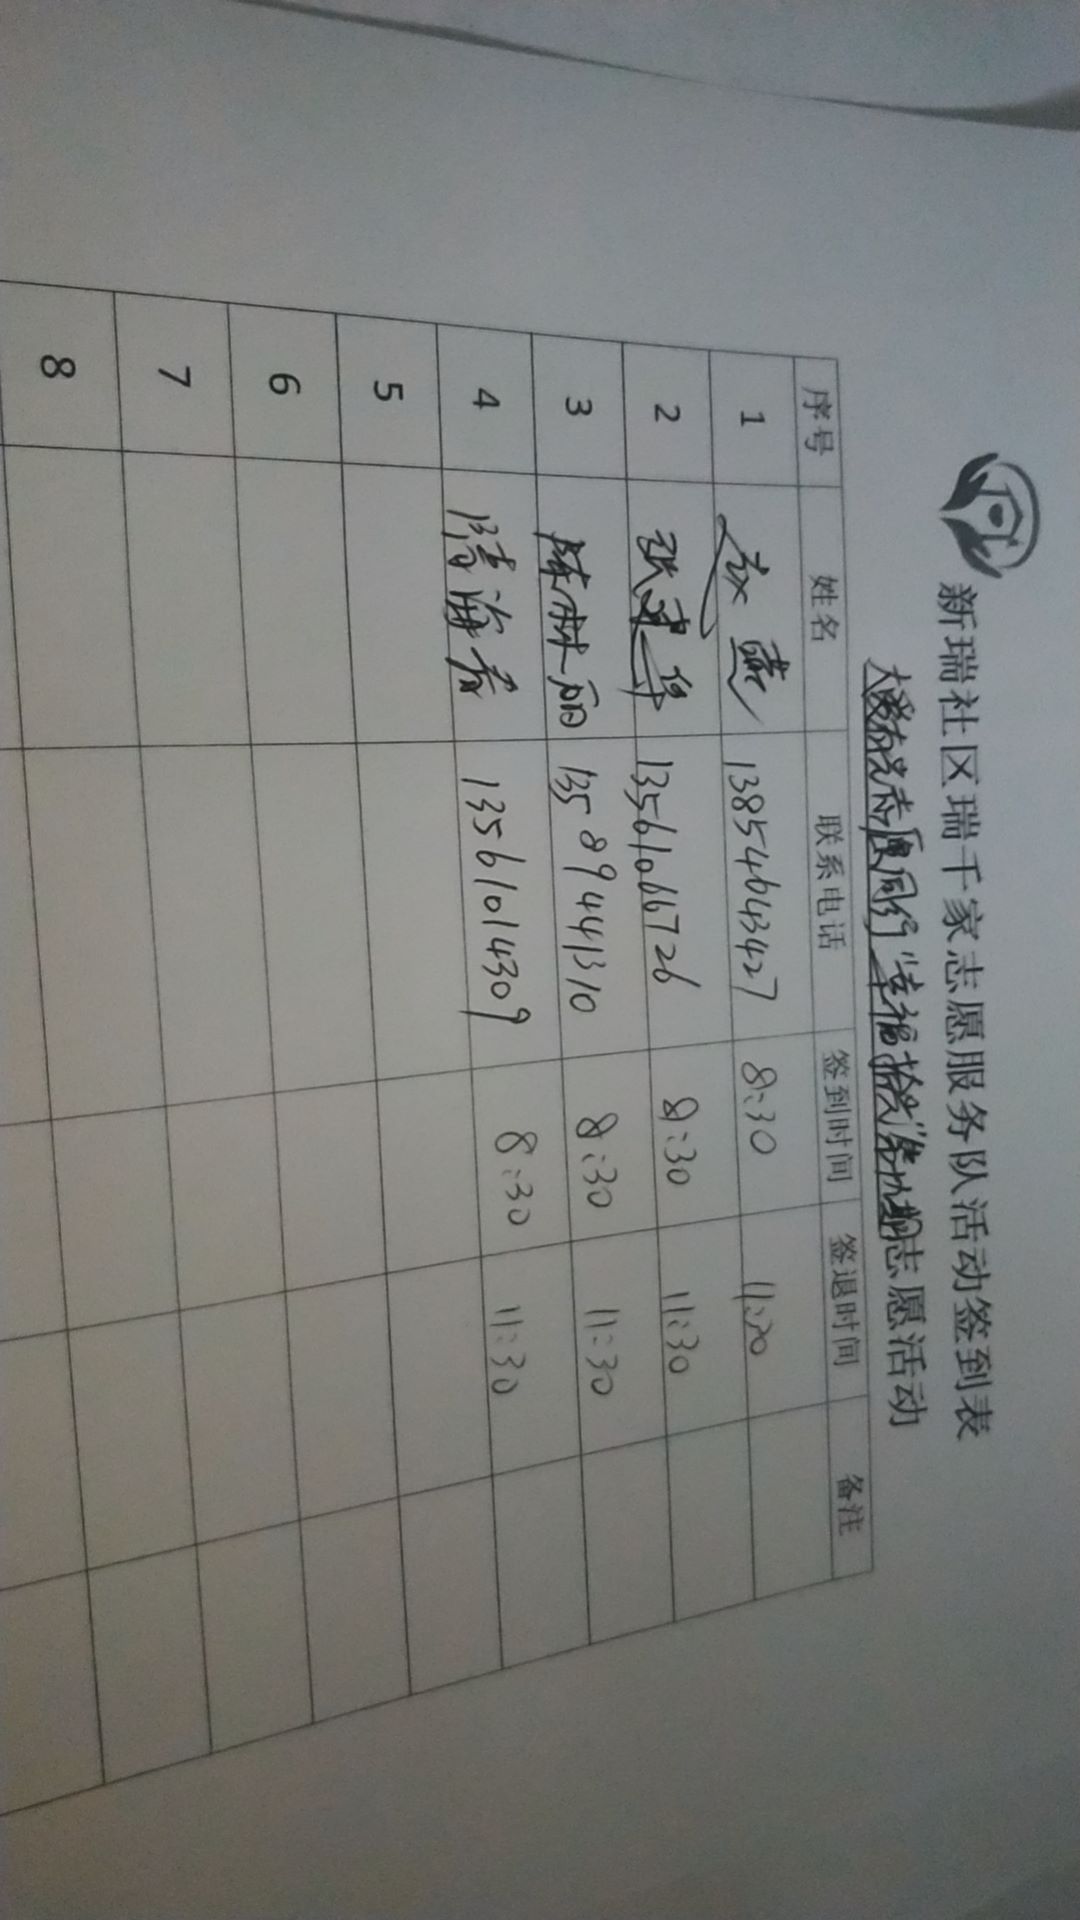 新瑞社区瑞千家志愿服务队活动签到表
志愿同行"幸福 志愿活动
序号 姓名 联系电话 签到时间 签退时间 备注
1 赵燕 13854643427 8:30 11:30
2 张建华 13561066726 8:30 11:30
3 陈林丽 13589441310 8:30 11:30
4 隋海春 13561014309 8:30 11:30
5
6
7
8